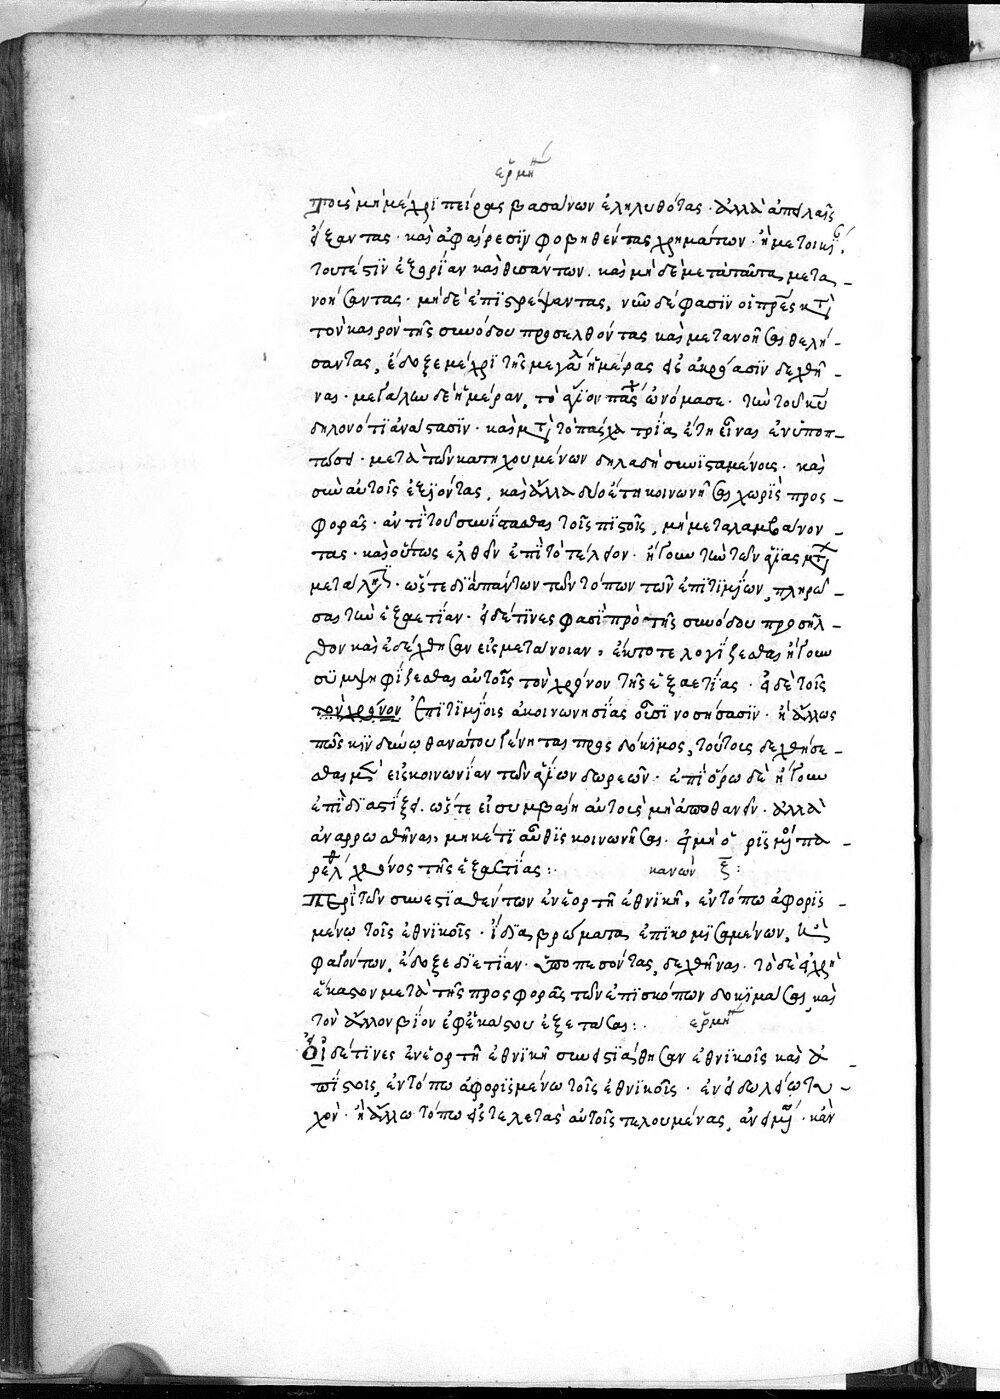 ἑρμη
τοὺς μὴ μέχρι πείρας βασάνων ἐληλυθότας· ἀλλὰ ἀπειλαῖς
εἴξαντας· καὶ ἀφαίρεσιν φοβηθέντας χρημάτων· ἢ μετοικι
τουτέστιν ἐξορίαν καὶ θυσάντων· καὶ μηδὲ μετὰ ταῦτα μετα-
νοήσαντας· μηδὲ ἐπιστρέψαντας, νῦν δέ φασιν οἱ πρες κτ
τὸν καιρὸν τῆς συνόδου προσελθόντας καὶ μετανοῆσαι θελή-
σαντας, ἔδοξε μέχρι τῆς μεγάλης ἡμέρας εἰς ἀκρόασιν δεχθῆ-
ναι· μεγάλην δὲ ἡμέραν, τὸ ἅγιον πάσχα ὠνόμασε· τὴν τοῦ κυ
δηλονότι ἀνάστασιν· καὶ μτ τὸ πάσχα τρία ἔτη εἶναι ἐν ὑποπ-
τώσει· μετὰ τῶν κατηχουμένων δηλαδὴ συνισταμένοις· καὶ
σὺν αὐτοῖς ἐξιόντας, καὶ ἄλλα δύο ἔτη κοινωνῆσαι χωρὶς προς-
φορᾶς· ἀντὶ τοῦ συνίστασθαι τοῖς πιστοῖς, μὴ μεταλαμβάνον-
τας· καὶ οὕτως ἐλθεῖν ἐπὶ τὸ τέλειον· ἤγουν τὴν τῶν ἁγίας μτ
μεταλη· ὥστε διὰ πάντων τῶν τόπων τῶν ἐπιτιμίων, πληρώ-
σας τὴν ἑξαετίαν· εἰ δέ τινες φασὶ πρὸ τῆς συνόδου προσῆλ-
θον καὶ ἐδέχθησαν εἰς μετάνοιαν, ἔκτοτε λογίζεσθαι ἤγουν
συμψηφίζεσθαι αὐτοῖς τὸν χρόνον τῆς ἑξαετίας· εἰ δὲ τοῖς
τὸν χρόνον ἐπιτιμίοις ἀκοινωνησίας οὖσι νοσήσασιν· ἢ ἄλλως
πῶς κινδύνῳ θανάτου γένηται προσδόκιμος, τούτους δεχθήσε-
σθαι μὲν εἰς κοινωνίαν τῶν ἁγίων δωρεῶν· ἐπὶ ὅρῳ δὲ ἤγουν
ἐπὶ διατάξει· ὥστε εἰ συμβαίη αὐτοὺς μὴ ἀποθανεῖν· ἀλλὰ
ἀναρρωσθῆναι, μηκέτι αὖθις κοινωνῆσαι· εἰ μὴ ὁ ρισμο πα-
ρέλθῃ χρόνος τῆς ἑξαετίας:· κανών ξ:
Περὶ τῶν συνεστιαθέντων ἐν ἑορτῇ ἐθνικῇ, ἐν τόπῳ ἀφορισ-
μένῳ τοῖς ἐθνικοῖς· ἴδια βρώματα ἐπικομισαμένων, καὶ
φαγόντων, ἔδοξε διετίαν· ὑποπεσόντας, δεχθῆναι· τὸ δὲ εἰ χρὴ
ἕκαστον μετὰ τῆς προσφορᾶς τῶν ἐπισκόπων δοκιμάσαι, καὶ
τὸν ἄλλον βίον ἐφ’ ἑκάστου ἐξετάσαι:· ἑρμη
Εἰ δέ τινες ἐν ἑορτῇ ἐθνικῇ συνειστιάθησαν ἐθνικοῖς καὶ ἀ
πίστοις, ἐν τόπῳ ἀφορισμένῳ τοῖς ἐθνικοῖς· ἐν εἰδωλείῳ τυ-
χόν· ἢ ἄλλῳ τόπῳ εἰς τελετὰς αὐτοῖς τελουμένας, ἀνειμ· κἂν